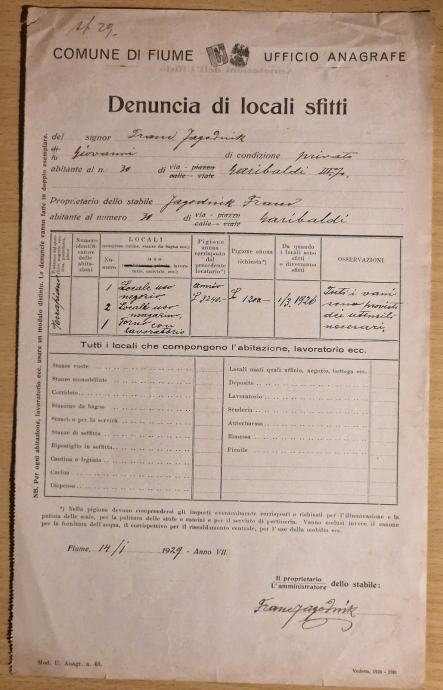 sf 29.
COMUNE DI FIUME UFFICIO ANAGRAFE
Denuncia di locali sfitti
del signor Franc Jagodnik
di fu Giovanni di condizione privato
abitante al n. 30 di via - piazza calle - viale Garibaldi III p.
Proprietario dello stabile Jagodnik Franc
abitante al numero 30 di via - piazza calle - viale Garibaldi
Numero identificatore delle abitazioni
LOCALI
Numero
uso
Pigione annua corrisposta dal precedente locatario*)
Pigione annua richiesta*)
Da quando i locali sono sfitti o diverranno sfitti
OSSERVAZIONI
terrepiano
1 Locale uso negozio
2 Locali uso magazino
1 Forno con lavoratorio
annio £ 3240.-
£ 1200.-
1/3 1926
Tutti i vani sono provisti dei utensili necessari.
Tutti i locali che compongono l'abitazione, lavoratorio ecc.
Stanze vuote
Stanze ammobiliate
Corridoio
Stanzino da bagno
Stanzino per la servitù
Stanze di soffitta
Ripostiglio in soffitta
Cantina o legnaia
Cucina
Dispensa
Locali usati quali uffizio, negozio, bottega ecc.
Deposito
Lavoratorio
Scuderia
Autorimessa
Rimessa
Fienile
*) Nella pigione devono comprendersi gli importi eventualmente corrisposti o richiesti per l'illuminazione e la
pulizia delle scale, per la pulitura delle stufe e camini e per il servizio di portineria. Vanno esclusi invece il canone
per la fornitura dell'acqua, il corrispettivo per il riscaldamento centrale, per l'uso della mobilia ecc.
Fiume, 14/I 1929 - Anno VII.
Il proprietario
L'amministratore dello stabile:
Franc Jagodnik
NB. Per ogni abitazione, lavoratorio ecc. usare un modulo distinto. Le denunce vanno fatte in doppio esemplare.
Mod. U. Anagr. n. 43.